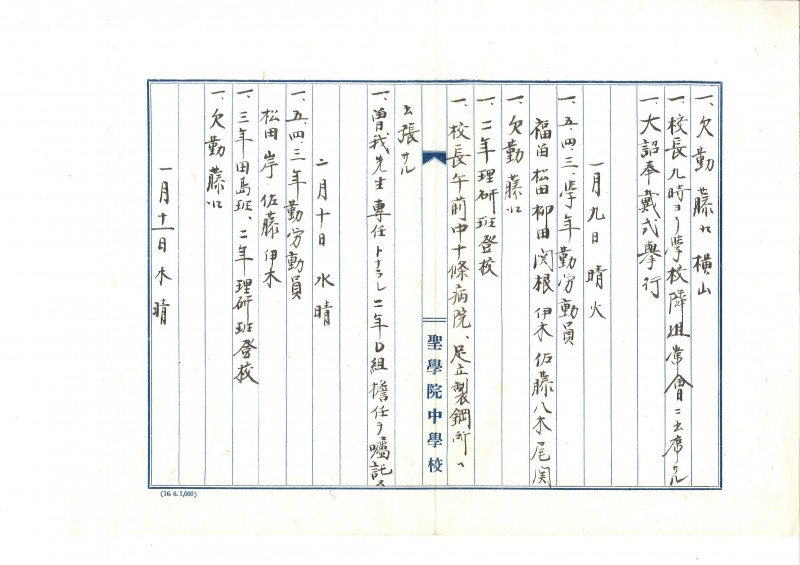 一、欠勤 藤口 横山
一、校長九時ヨリ學校隣組常會ニ出席サル
一、大詔奉戴式擧行
一月九日 晴 火
一、五、四、三、學年勤労動員
福田 松田 柳田 関根 伊木 佐藤 八木 尾関
一、欠勤 藤口
一、二年理研班登校
一、校長午前中十條病院、足立製鋼所ヘ
出張サル
一、曽我先生 専任トナラレ 二年D組擔任ヲ囑託ス
一月十日 水 晴
一、五、四、三年勤労動員
松田 岸 佐藤 伊木
一、三年田島班、二年理研班登校
一、欠勤 藤口
一月十一日 木 晴
聖學院中學校
(16. 6. 3,000)